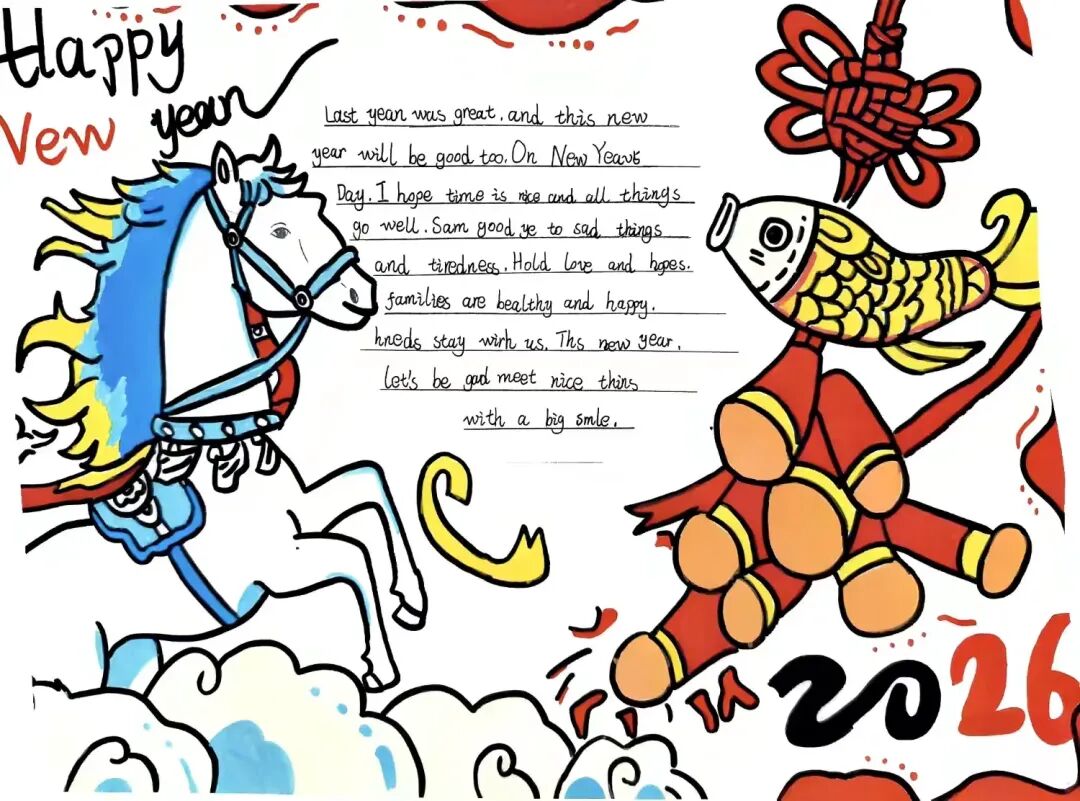 Happy
New
year
Last year was great, and this new
year will be good too. On New Year's
Day. I hope time is nice and all things
go well. Sam good ye to sad things
and tiredness. Hold love and hopes.
families are healthy and happy.
hneds stay with us. Ths new year,
let's be gad meet nice thins
with a big smle.
2026